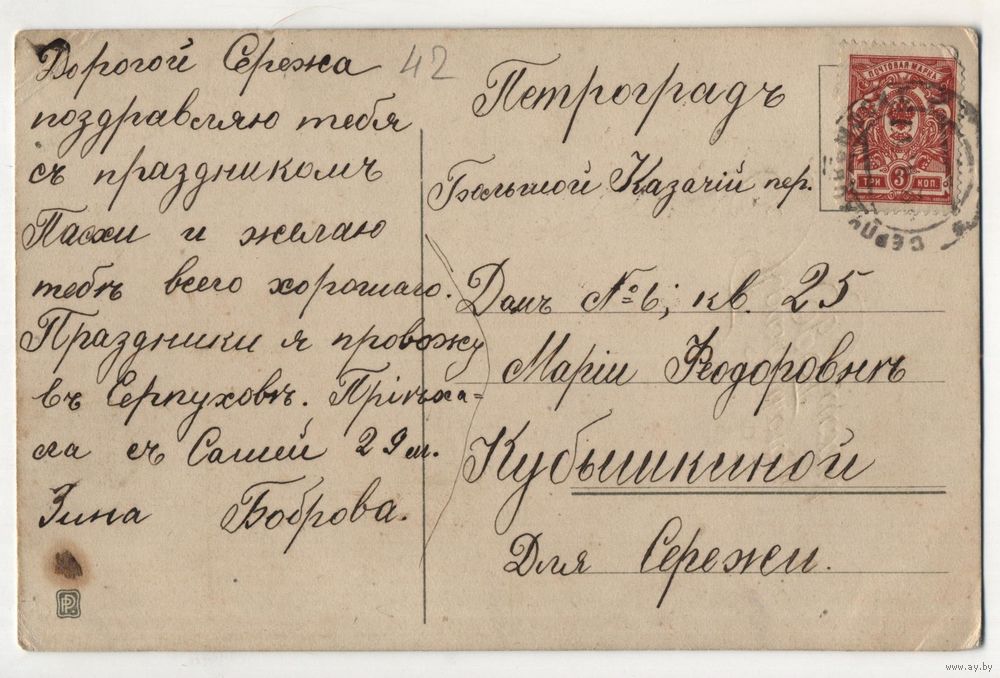 Дорогой Сережа
поздравляю тебя
съ праздникомъ
Пасхи и желаю
тебѣ всего хорошаго.
Праздники я провожу
въ Серпуховѣ. Пріѣха-
ла съ Сашей 29 м.
Зина Боброва.
42
Петроградъ
Большой Казачій пер.
Домъ № 6; кв. 25
Маріи Ѳеодоровнѣ
Кубышкиной
Для Сережи.
ПОЧТОВАЯ МАРКА
ТРИ 3 КОП.
СЕРПУ
PR
www.ay.by